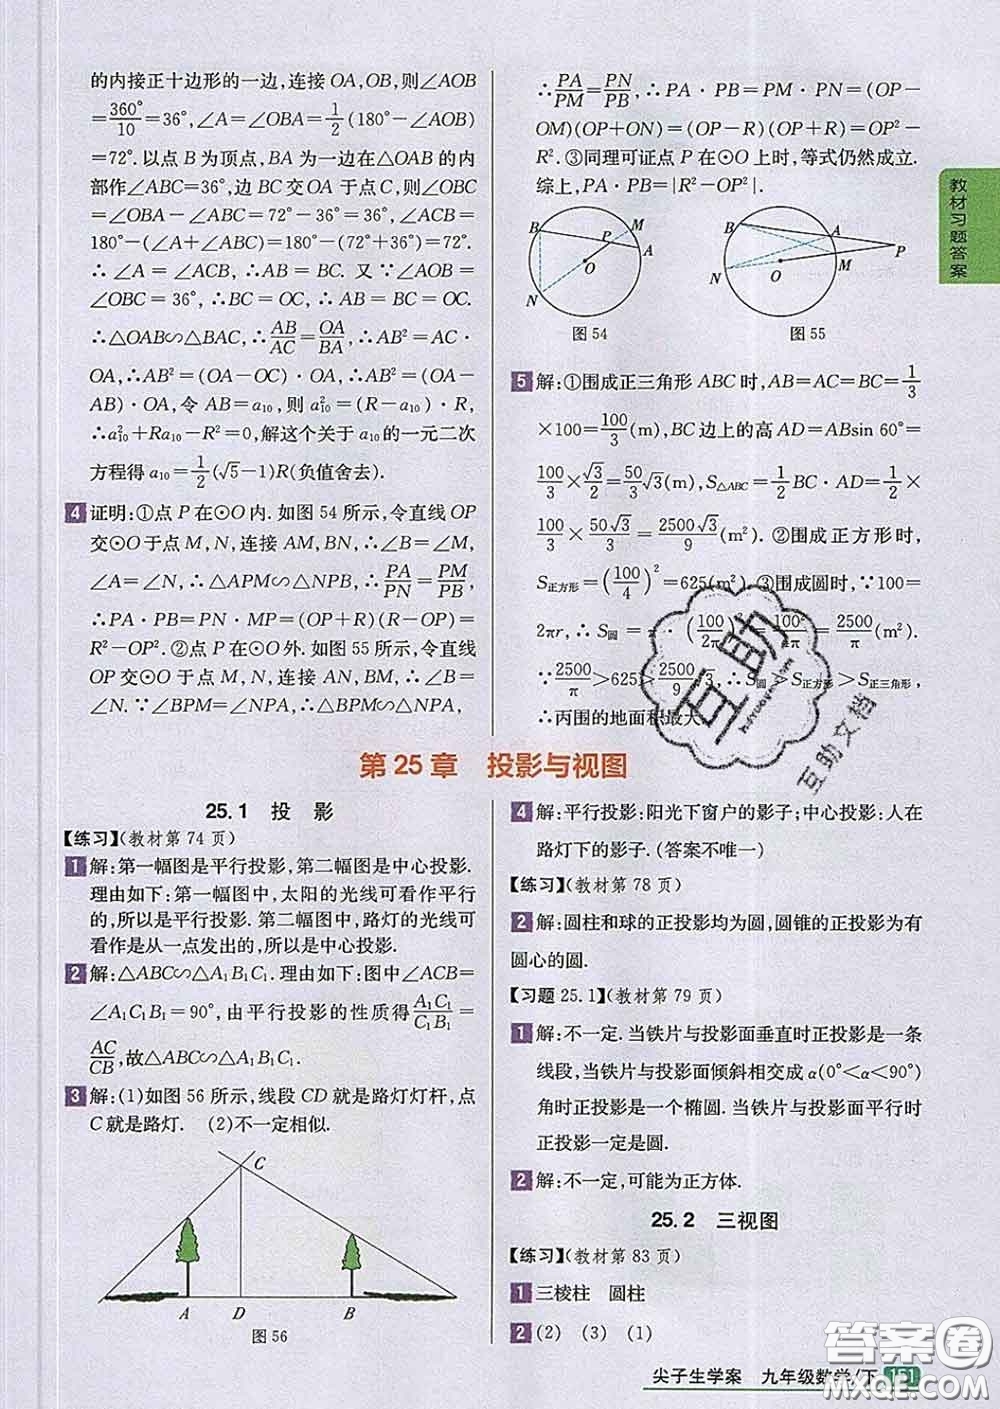 的内接正十边形的一边,连接 OA,OB,则∠AOB
=360°/10=36°,∠A=∠OBA=1/2(180°-∠AOB)
=72°. 以点 B 为顶点,BA 为一边在△OAB 的内
部作∠ABC=36°,边 BC 交 OA 于点 C,则∠OBC
=∠OBA-∠ABC=72°-36°=36°,∠ACB=
180°-(∠A+∠ABC)=180°-(72°+36°)=72°.
∴∠A=∠ACB,∴AB=BC. 又∵∠AOB=
∠OBC=36°,∴BC=OC,∴AB=BC=OC.
∴△OAB∽△BAC,∴AB/AC=OA/BA,∴AB²=AC·
OA,∴AB²=(OA-OC)·OA,∴AB²=(OA-
AB)·OA,令 AB=a₁₀,则 a₁₀²=(R-a₁₀)·R,
∴a₁₀²+Ra₁₀-R²=0,解这个关于 a₁₀的一元二次
方程得 a₁₀=1/2(√5-1)R(负值舍去).
4 证明:①点 P 在⊙O 内. 如图 54 所示,令直线 OP
交⊙O 于点 M,N,连接 AM,BN,∴∠B=∠M,
∠A=∠N,∴△APM∽△NPB,∴PA/PN=PM/PB,
∴PA·PB=PN·MP=(OP+R)(R-OP)=
R²-OP². ②点 P 在⊙O 外. 如图 55 所示,令直线
OP 交⊙O 于点 M,N,连接 AN,BM,∴∠B=
∠N. ∵∠BPM=∠NPA,∴△BPM∽△NPA,
∴PA/PM=PN/PB,∴PA·PB=PM·PN=(OP-
OM)(OP+ON)=(OP-R)(OP+R)=OP²-
R². ③同理可证点 P 在⊙O 上时,等式仍然成立.
综上,PA·PB=|R²-OP²|.
B P M A O N
图 54
B A P M N O
图 55
5 解:①围成正三角形 ABC 时,AB=AC=BC=1/3
×100=100/3(m),BC 边上的高 AD=ABsin 60°=
100/3×√3/2=50/3√3(m),S△ABC=1/2BC·AD=1/2×
100/3×50√3/3=2500√3/9(m²). ②围成正方形时,
S正方形=(100/4)²=625(m²). ③围成圆时,∵100=
2πr,∴S圆=π·(100/2π)²=2500/π(m²).
∵2500/π>625>2500/9√3,∴S圆>S正方形>S正三角形,
∴丙围的地面积最大.
教材习题答案
第 25 章 投影与视图
25.1 投 影
【练习】(教材第 74 页)
1 解:第一幅图是平行投影,第二幅图是中心投影.
理由如下:第一幅图中,太阳的光线可看作平行
的,所以是平行投影. 第二幅图中,路灯的光线可
看作是从一点发出的,所以是中心投影.
2 解:△ABC∽△A₁B₁C₁. 理由如下:图中∠ACB=
∠A₁C₁B₁=90°,由平行投影的性质得A₁C₁/C₁B₁=
AC/CB,故△ABC∽△A₁B₁C₁.
3 解:(1)如图 56 所示,线段 CD 就是路灯灯杆,点
C 就是路灯. (2)不一定相似.
C
A D B
图 56
4 解:平行投影:阳光下窗户的影子;中心投影:人在
路灯下的影子. (答案不唯一)
【练习】(教材第 78 页)
2 解:圆柱和球的正投影均为圆,圆锥的正投影为有
圆心的圆.
【习题 25.1】(教材第 79 页)
1 解:不一定. 当铁片与投影面垂直时正投影是一条
线段,当铁片与投影面倾斜相交成 α(0°<α<90°)
角时正投影是一个椭圆. 当铁片与投影面平行时
正投影一定是圆.
2 解:不一定,可能为正方体.
25.2 三视图
【练习】(教材第 83 页)
1 三棱柱 圆柱
2 (2) (3) (1)
尖子生学案 九年级数学/下 151
互助
互助文档
答案圈
MXQE.COM